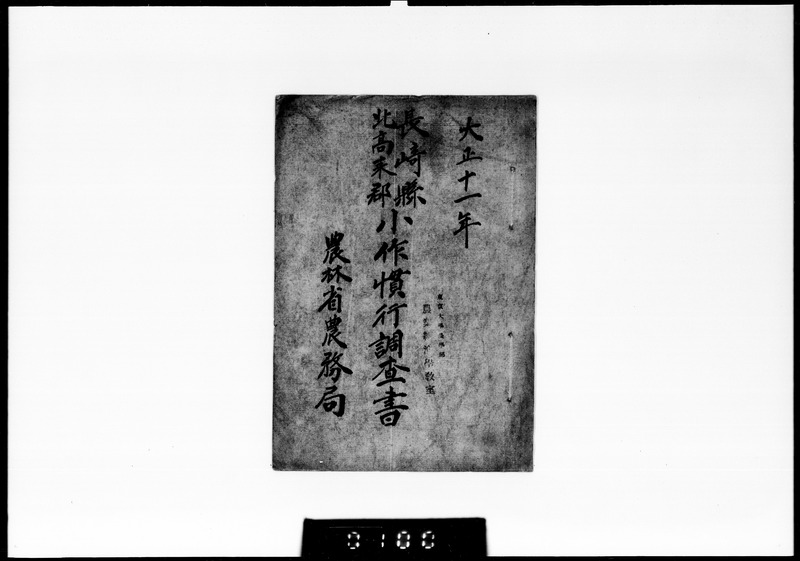 大正十一年
長崎縣
北高来郡
小作慣行調査書
農林省農務局
教室
0100